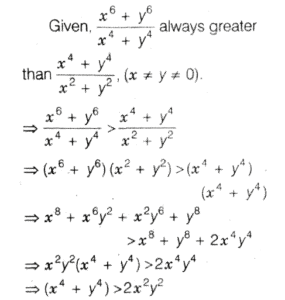 Given, \frac{x^6 + y^6}{x^4 + y^4} always greater
than \frac{x^4 + y^4}{x^2 + y^2}, (x ≠ y ≠ 0).
⇒ \frac{x^6 + y^6}{x^4 + y^4} > \frac{x^4 + y^4}{x^2 + y^2}
⇒ (x^6 + y^6)(x^2 + y^2) > (x^4 + y^4)
(x^4 + y^4)
⇒ x^8 + x^6y^2 + x^2y^6 + y^8
> x^8 + y^8 + 2x^4y^4
⇒ x^2y^2(x^4 + y^4) > 2x^4y^4
⇒ (x^4 + y^4) > 2x^2y^2